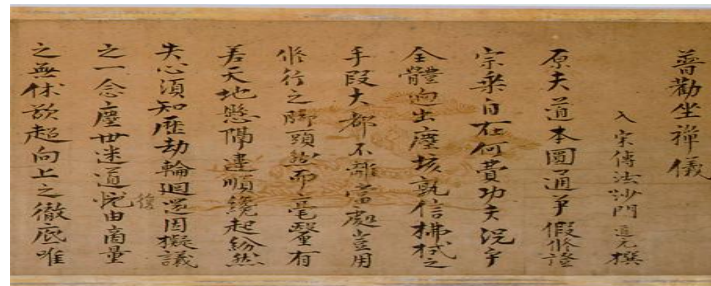 普勸坐禪儀
入宋傳法沙門道元撰
原夫道本圓通爭假修證
宗乘自在何費功夫況乎
全體迥出塵埃孰信拂拭之
手段大都不離當處豈用
修行之脚頭然而毫釐有
差天地懸隔違順纔起紛然
失心須知歷劫輪迴還因擬議
之一念塵世迷道由商量
復
之無休欲超向上之徹底唯